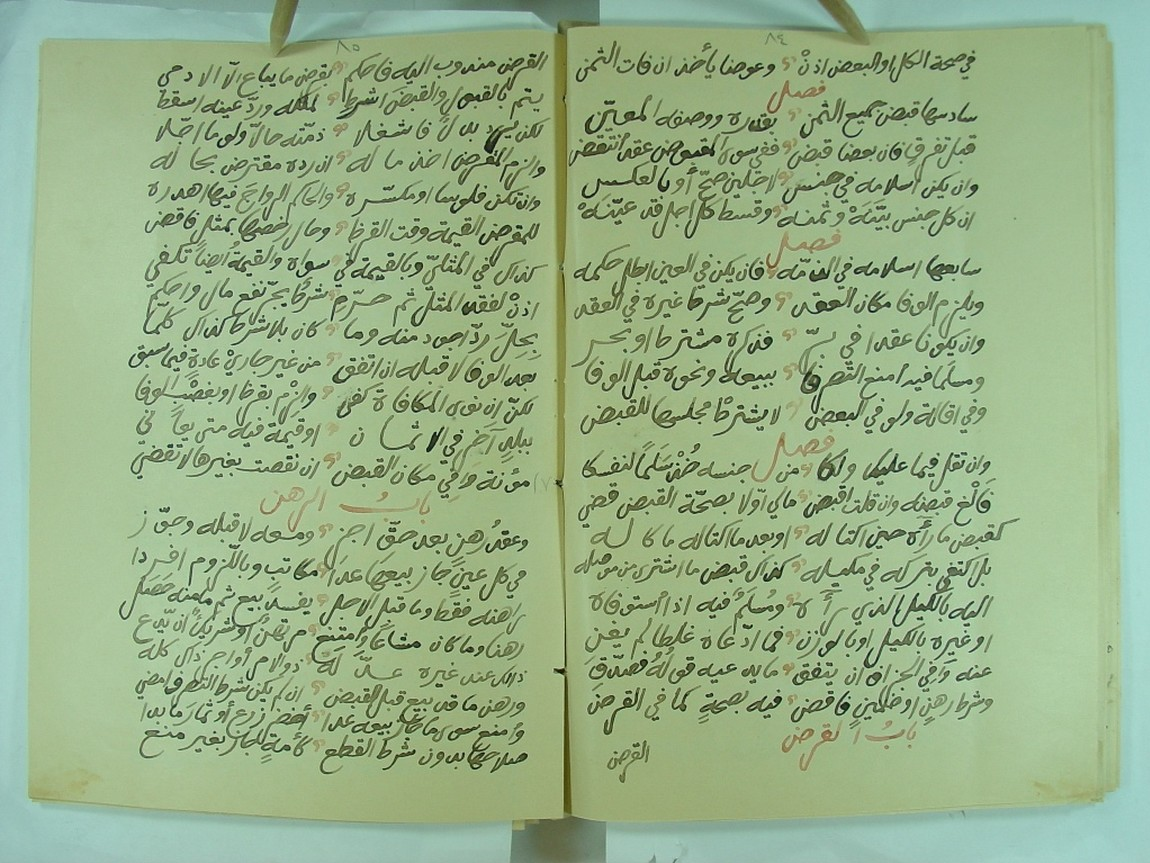 ٨٤
في صحة الكل او البعض اذنْ وعوضا يأخذ ان فات الثمن
فصل
سادسها قبض جميع الثمن بقدره ووصفه المعيّن
قبل تفرق فان بعضا قبض ففي سوى المقبوض عقد انتقض
وان يكن اسلامه في جنس لاجلين صحّ أو بالعكس
ان كل جنس بيّنَهْ وثمنه وقسط كل اجل قد عيّنَهْ
فصل
سابعها اسلامه في الذمّه فان يكن في العين ابطل حكمه
ويلزم الوفا مكان العقد وصحّ شرط غيره في العقد
وان يكونا عقدا في برّ فذكره مشترط او بحر
ومسلما فيه امنع التصرفا ببيعه ونحوه قبل الوفا
وفي اقالة ولو في البعض لا يشترط مجلسها للقبض
فصل
وان تقل فيما عليك ولكا من جنسه خذ سلمًا لنفسكا
فألغ قبضه وان قلت اقبض مالي اوّلا بصحّة القبض قضي
كقبض ما رآه حين اكتاله او بعد ما اكتاله ما كا له
بل اكتفي بتركه في مكيله كذاك قبض ما اشترى من موصله
اليه بالكيل الذي رآه ومُسلَم فيه اذا استوفاه
او غيره بالكيل او بالوزن فما ادّعاه غلطا لم يغن
عنه وفي الجزاف ان يتفق ما يدعيه قوله فصدّق
وشرط رهن او ضمين فاقض فيه بصحةٍ كما في القرض
بابُ القرض
القرض
٨٥
القرض مندوب اليه فاحكم بقرض ما يباع الّا الادمي
يتم بالقبول والقبض اشرط لملكه وردّ عينه اسقط
لكن يرد بدلًا فاشغلا ذمّته حالا ولو ما اجّلا
والزم المقرض اخذ ماله ان رده مقترض بحاله
وان تكن فلوسا او مكسّره والحاكم الرواج فيها اهدره
للمقرض القيمة وقت القرض وحال خصمها بمثل فاقض
كذاك في المثليّ وبالقيمة في سواه والقيمة ايضا تكفي
اذنْ لفقد المثل ثم حرّم شرطًا يجرّ نفع مال واحكم
بحلّ ردّ اجود منه وما كان بلا شرط كذاك كلّما
بعد الوفا لا قبله ان اتفق من غير جاريْ عادة فيما سبق
لكنّ ان نوى المكافاة كفى والزم بقرض او بغصب الوفا
ببلدٍ آخر في الاثمان او قيمة فيه متى يعاني
مؤنة وفي مكان القبض ان نقصت بغيرها لا تقضي
بابُ الرهن
وعقدُ رهن بعد حقّ اجز ومعه لا قبله وجوّز
في كل عين جاز بيعها عدا مكاتب وباللزوم افردا
راهنه فقط وما قبل الاجل يفسد بيع ثم ثمنه حصل
رهنا وما كان مشاعا وامتنع مرتهن أو شريك ان يدّع
ذاك عند غيره عدلّ له ذو الامر أو اجر ذاك كله
ورهن ما قد بيع قبل القبض ان لم يكن شرط التصرف امضي
وامنع سوى ما جاز بيعه عدا أخضر زرع أو ثمار ما بدا
صلاحها بدون شرط القطع كأمةٍ للجار بغير منع